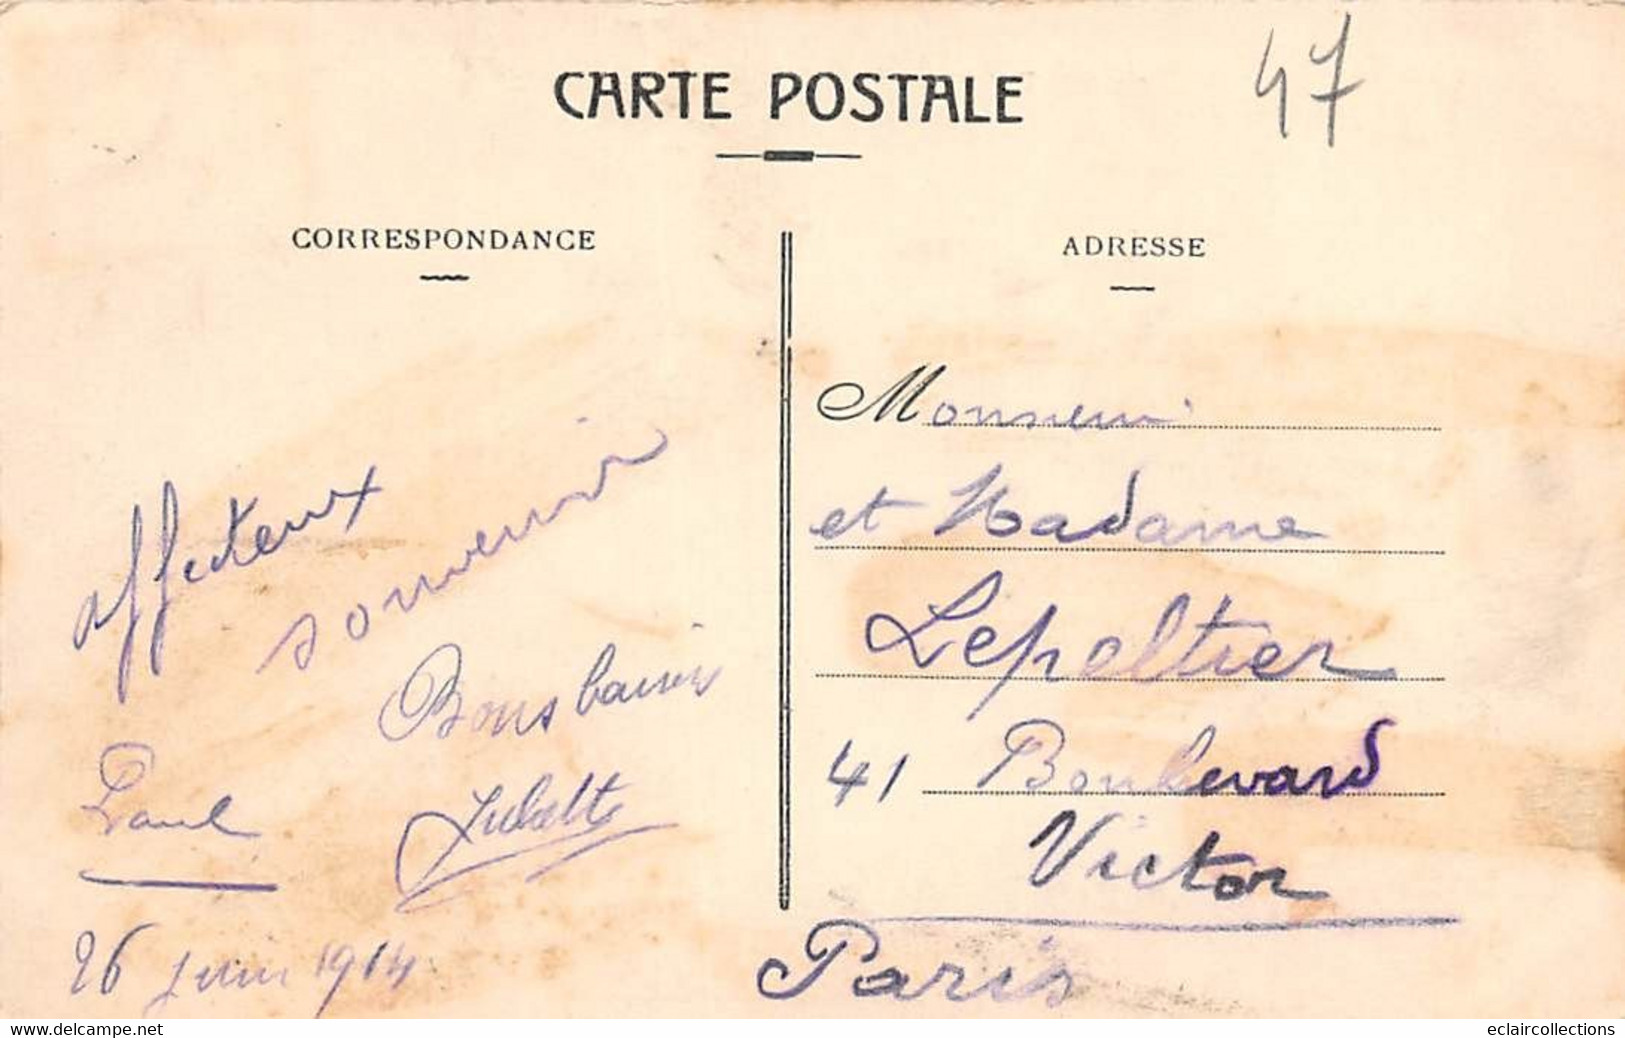 CARTE POSTALE
47
CORRESPONDANCE
affectueux
souvenir
Bons baisers
Paul
Juliette
26 juin 1914
ADRESSE
Monsieur
et Madame
Lepeltier
41 Boulevard
Victor
Paris
www.delcampe.net
eclaircollections